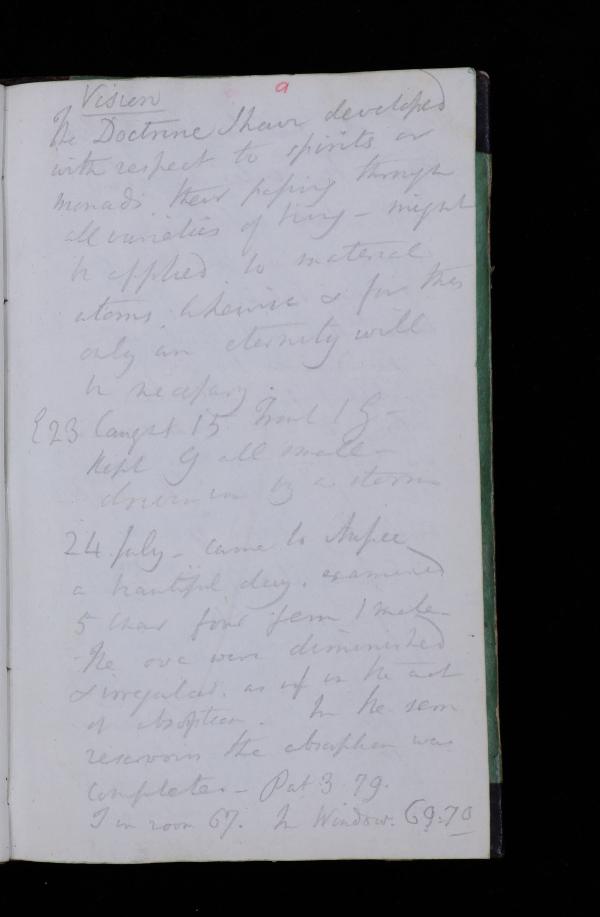 9
Vision
The Doctrine I have developed
with respect to spirits or
monads their passing through
all varieties of being - might
be applied to material
atoms likewise & for this
only an eternity will
be necessary.
23 Caught 15 Trout 1 G -
Kept 9 all small -
driven in by a storm
24 July - came to Aussee
a beautiful day. examined
5 Char four fem 1 male -
The ova were diminished
& irregular. as if in the act
of absorption. In the sem
reservoirs the absorption was
complete. - Pat 3. 79.
T in room 67. In Window. 69.70